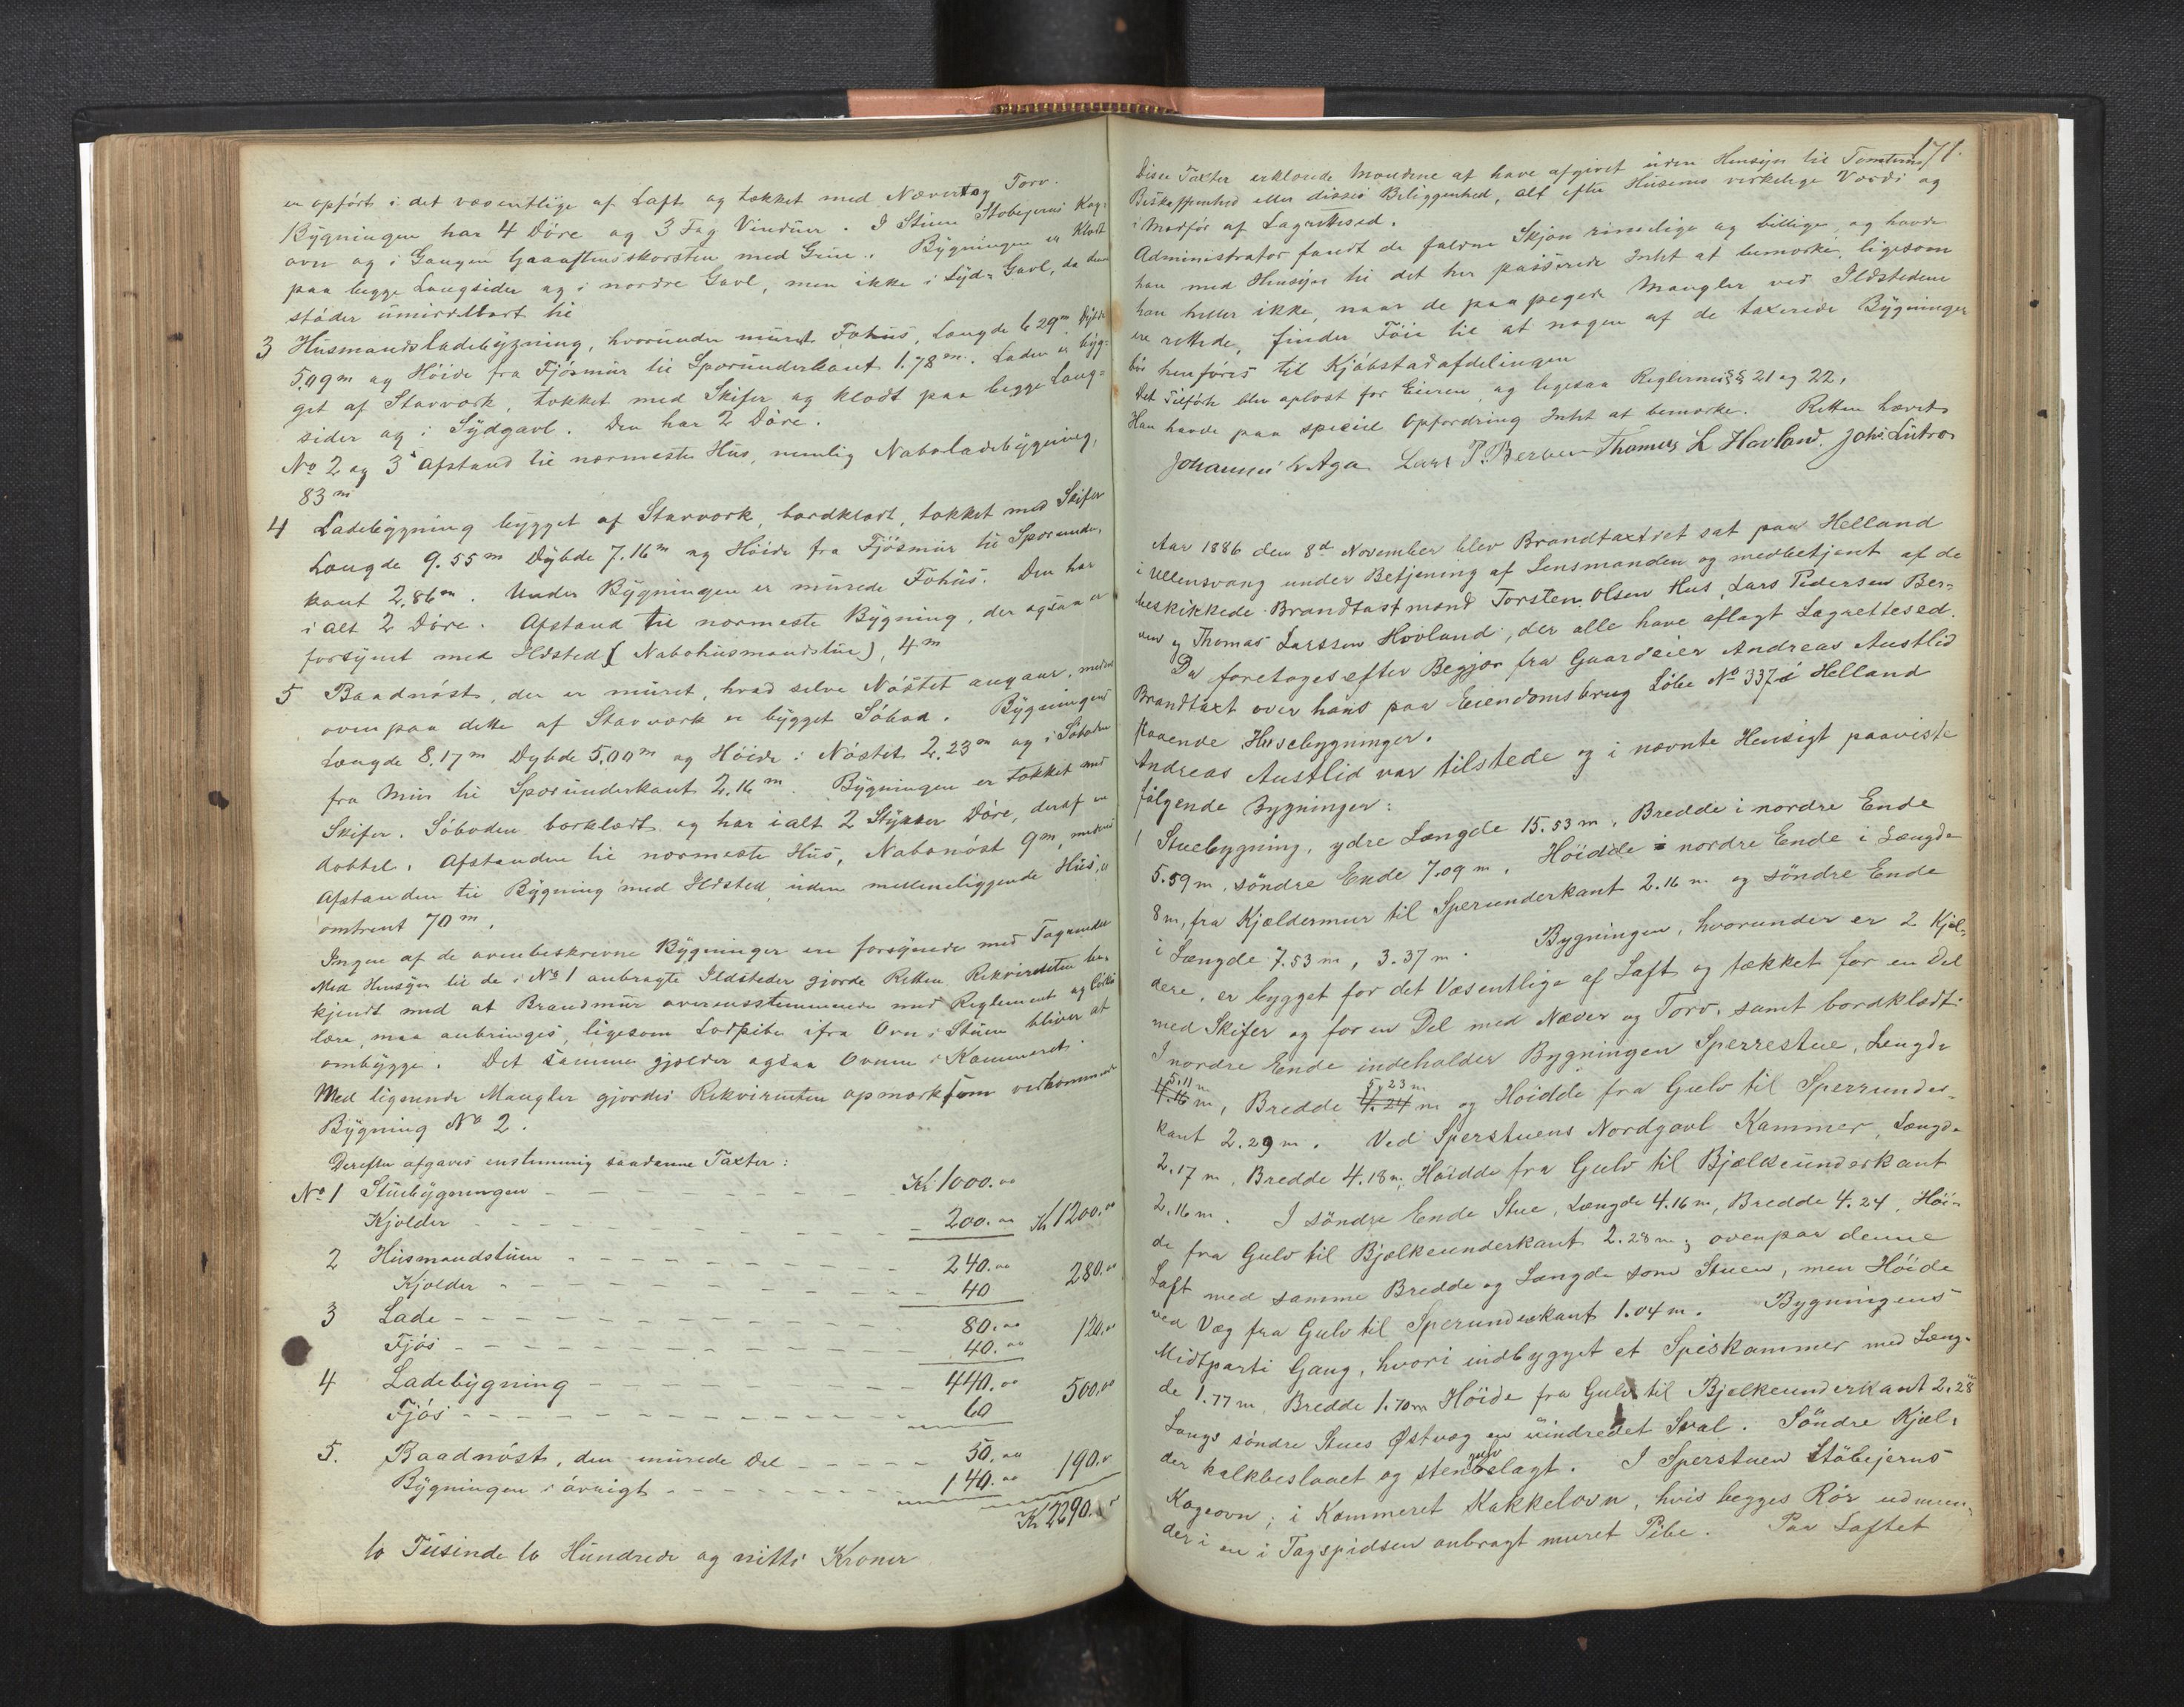 er opført i det væsentlige af Laft og tækket med Næver og Torv.
Bygningen har 4 Døre og 3 Fag Vinduer. I Stuen Støbejerns Kog-
ovn og i Gangen Skorsten med Grue. Bygningen er klædt
paa begge Langsider og i nordre Gavl, men ikke i Syd-Gavl, da den
støder umiddelbart til
3 Husmandsladebygning, hvorunder muret Fæhus, Længde 6.29m, Dybde
5.09m og Høide fra Fjøsmur til Sperunderkant 1.78m. Laden er byg-
get af Stavværk, tækket med Skifer og klædt paa begge Lang-
sider og i Sydgavl. Den har 2 Døre.
No 2 og 3s Afstand til nærmeste Hus, nemlig Naboladebygning,
83m
4 Ladebygning bygget af Stavværk, bordklædt, tækket med Skifer
Længde 9.55m Dybde 7.16m og Høide fra Fjøsmur til Sperunder-
kant 2.86m. Under Bygningen er murede Fæhus. Den har
i alt 2 Døre. Afstand til nærmeste Bygning, der ogsaa er
forsynet med Ildsted (Nabohusmandstue), 4m
5 Baadnøst, der er muret, hvad selve Nøstet angaar, medens
oven paa dette af Stavværk er bygget Søbod. Bygningens
Længde 8.17m Dybde 5.00m og Høide i Nøstet 2.23m og i Søboden
fra Mur til Sperunderkant 2.16m. Bygningen er tækket med
Skifer. Søboden bordklædt og har ialt 2 Stykker Døre, deraf en
dobbel. Afstanden til nærmeste Hus, Nabonøst 9m, medens
Afstanden til Bygning med Ildsted, uden mellemliggende Hus, er
omtrent 70m.
Ingen af de ovenbeskrevne Bygninger ere forsynede med Tagrender
Med Hensyn til de i No 1 anbragte Ildsteder gjorde Retten Rekvirenten be-
kjendt med at Brandmur overensstemmende med Reglement og
maa anbringes, ligesom Lodpibe ifra Ovn i Stuen bliver at
ombygge. Det samme gjælder ogsaa Ovnen i Kammeret.
Med lignende Mangler gjordes Rekvirenten opmærksom vedkommende
Bygning No 2.
Derefter afgaves enstemmig saadanne Taxter:
No 1 Stuebygningen - - - Kr 1000.00
Kjelder - - - 200.00 Kr 1200.00
2 Husmandstuen - - - 240.00
Kjelder - - - 40 280.00
3 Lade - - - 80.00
Fjøs - - - 40.00 120.00
4 Ladebygning - - - 440.00
Fjøs - - - 60 500.00
5. Baadnøst, den murede Del - - - 50.00
Bygningen i øvrigt - - - 140.00 190.00
Kr 2290.00
to Tusinde to Hundrede og nitti Kroner
171.
Disse Taxter erklærede Mændene at have afgivet uden Hensyn til Tomternes
Beskaffenhed eller disses Beliggenhed, alt efter Husenes virkelige Værdi og
i Medfør af Lagrettesed.
Administrator fandt de faldne Skjøn rimelige og billige, og havde
han med Hensyn til det her passerede Intet at bemærke, ligesom
han heller ikke, naar de paapegede Mangler ved Ildstedene
ere rettede, finder Føie til at nogen af de taxerede Bygninger
bør henføres til Kjøbstadafdelingen
Det Tilførte blev oplæst for Eieren, og ligesaa Reglernes §§ 21 og 22.
Han havde paa speciel Opfordring Intet at bemærke. Retten hævet
Johannes L Aga Lars P. Berven Thomas L Hovland. Johs. Lutro
Aar 1886 den 8de November blev Brandtaxtret sat paa Helland
i Ullensvang under Betjening af Lensmanden og medbetjent af de
beskikkede Brandtaxtmænd Torsten Olsen Hus, Lars Pedersen Ber-
ven og Thomas Larssen Hovland, der alle have aflagt Lagrettesed.
Da foretoges efter Begjær fra Gaardeier Andreas Austlid
Brandtaxt over hans paa Eiendomsbrug Løbe No 337a Helland
staaende Husebygninger.
Andreas Austlid var tilstede og i nævnte Hensigt paaviste
følgende Bygninger:
1 Stuebygning, ydre Længde 15.53 m, Bredde i nordre Ende
5.59 m, søndre Ende 7.09 m. Høidde i nordre Ende i Længde
8 m, fra Kjældermur til Sperunderkant 2.16 m og søndre Ende
i Længde 7.53 m, 3.37 m. Bygningen, hvorunder er 2 Kjæl-
dere, er bygget for det Væsentlige af Laft og tækket for en Del
med Skifer og for en Del med Næver og Torv, samt bordklædt.
I nordre Ende indeholder Bygningen Sperrestue, Længde
5.11 m
4.16 m, Bredde 5.23 m 4.24 m og Høidde fra Gulv til Sperrunder-
kant 2.29 m. Ved Sperstuens Nordgavl Kammer, Længde
2.17 m, Bredde 4.18 m, Høidde fra Gulv til Bjælkeunderkant
2.16 m. I søndre Ende Stue, Længde 4.16 m, Bredde 4.24, Høi-
de fra Gulv til Bjelkeunderkant 2.28 m, ovenpaa denne
Laft med samme Bredde og Længde som Stuen, men Høide
ved Væg fra Gulv til Sperunderkant 1.04 m. Bygningens
Midtparti Gang, hvori indbygget et Spiskammer med Læng-
de 1.77 m, Bredde 1.70m Høide fra Gulv til Bjelkeunderkant 2.28
Langs søndre Stues Østvæg en uindredet Sval. Søndre Kjæl-
der kalkbeslaaet og stengulvbelagt. I Sperstuen Støbejerns
Kogeovn; i Kammeret Kakkelovn, hvis begges Rør udmun-
der i en i Tagspidsen anbragt muret Pibe. Paa Laftet